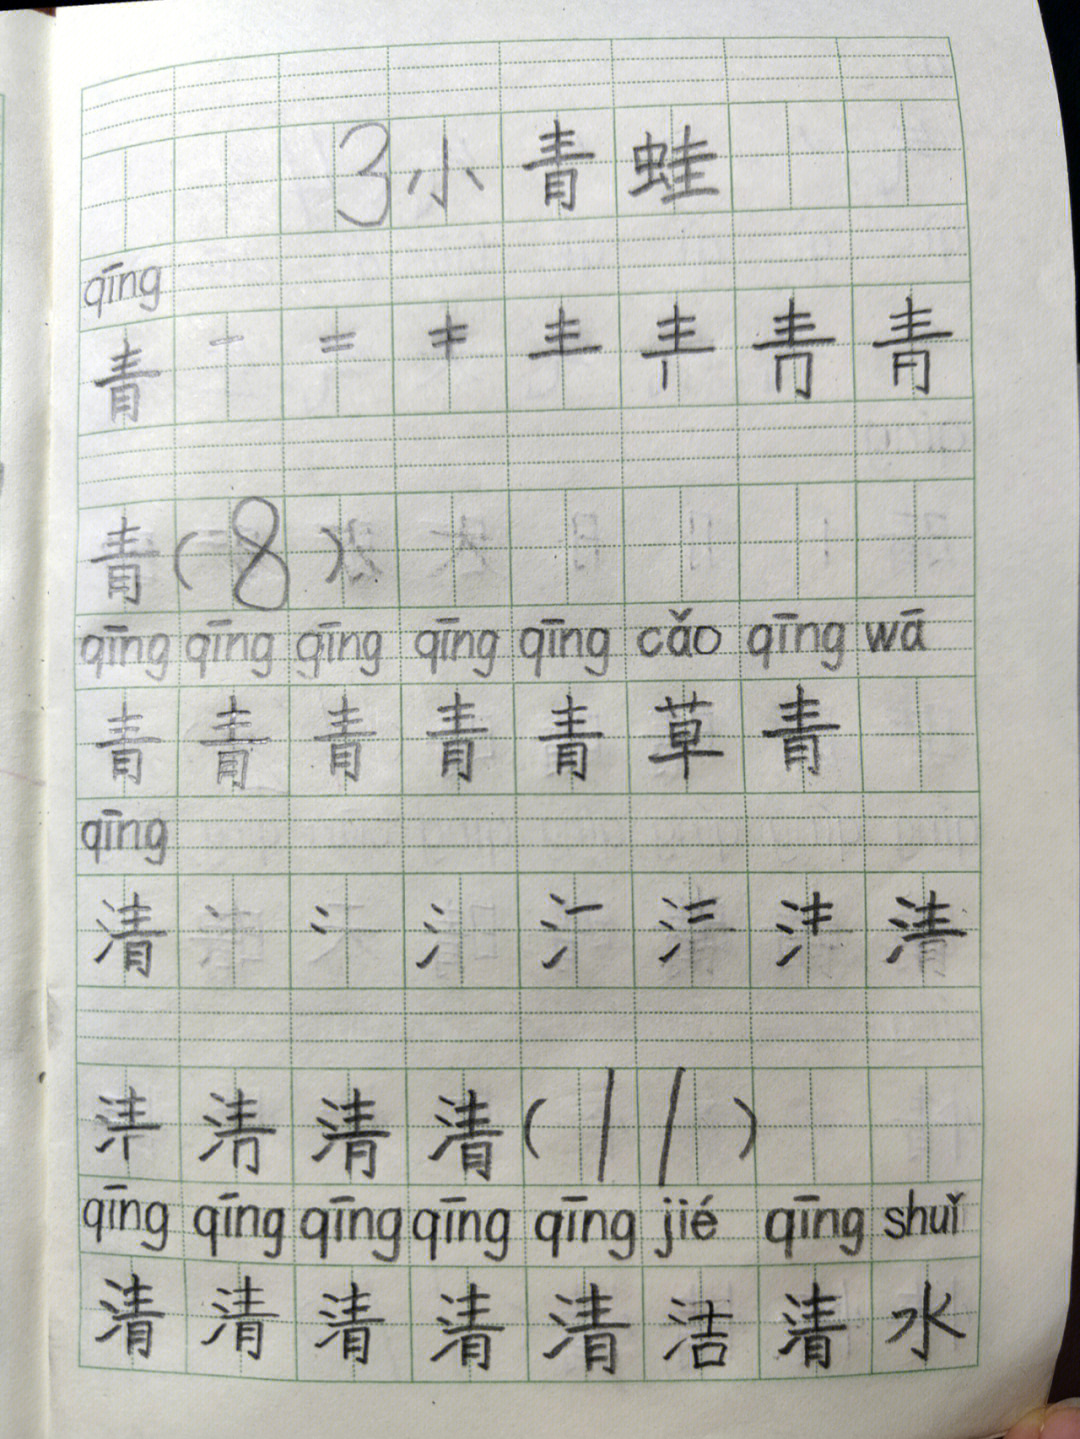 3小青蛙
qīng
青 一 二 キ 龶
青(8)
qīng qīng qīng qīng qīng cǎo qīng wā
青 青 青 青 青 草 青
qīng
清 丶 冫 氵
清 清 (11)
qīng qīng qīng qīng qīng jié qīng shuǐ
清 清 清 清 清 洁 清 水